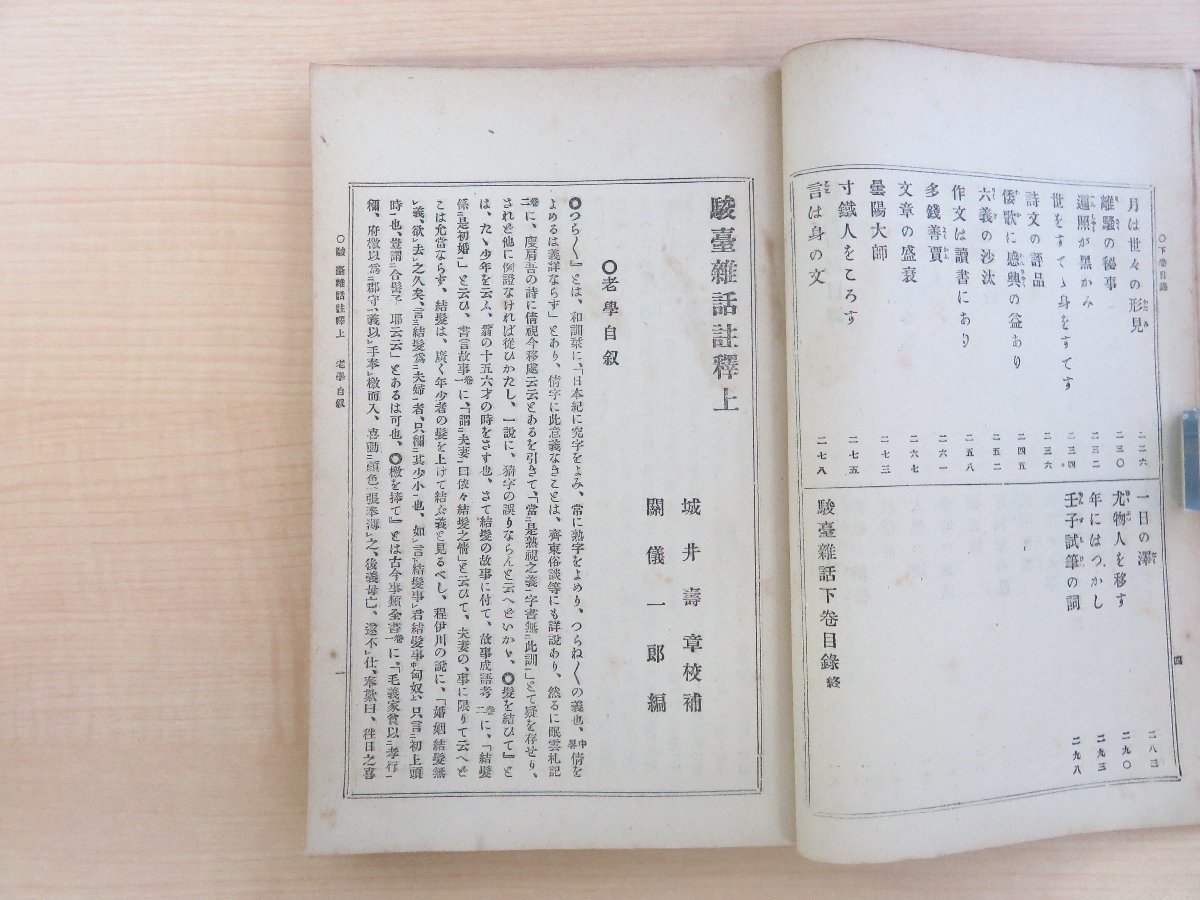 ○下卷目錄
月は世々の形見 二二六
離騷の秘事 二三〇
遍照が黑かみ 二三二
世をすてゝ身をすてず 二三四
詩文の評品 二三六
倭歌に感興の益あり 二四五
六義の沙汰 二五二
作文は讀書にあり 二五八
多錢善賈 二六一
文章の盛衰 二六七
曇陽大師 二七三
寸鐵人をころす 二七五
言は身の文 二七八
一日の澤 二八三
尤物人を移す 二九〇
年にはつかし 二九三
壬子試筆の詞 二九八
駿臺雜話下卷目錄終
四
駿臺雜話註釋上
城井壽章校補
關儀一郎編
○老學自叙
○つら〱』とは、和訓栞に、「日本紀に究字をよみ、常に熟字をよめり、つらね〱の義也、中畧倩を
よめるは義詳ならず」とあり、倩字に此意義なきことは、齊東俗談等にも詳說あり、然るに眠雲札記
卷二に、庾肩吾の詩に倩視今移處云云とあるを引きて、「當ニ是熟視之義一字書無ニ此訓一」とて疑を存せり、
されど他に例證なければ從ひかたし、一說に、猜字の誤りならんと云へどいかゞ、○髮を結びて』と
は、たゞ少年を云ふ、翁の十五六才の時をさす也、さて結髮の故事に付て、故事成語考卷二に、「結髮
係ニ是初婚一」と云ひ、書言故事卷一に、「謂ニ夫妻一曰依々結髮之情」と云ひて、夫妻の、事に限りて云へど
こは允當ならず、結髮は、廣く年少者の髮を上けて結ぶ義と見るべし、程伊川の說に、「婚姻結髮無
レ義、欲レ去レ之久矣、言ニ結髮爲ニ夫婦一者、只稱ニ其少小一也、如レ言ニ結髮事レ君結髮事ニ匈奴一、只言ニ初上頭
時一也、豈謂ニ合髻子一耶云云」とあるは可也、○檄を捧て』とは古今事類全書卷一に、「毛義家貧以ニ孝行一
稱、府檄以爲ニ郡守一、義以レ手奉レ檄而入、喜動ニ顏色一、張奉薄レ之、後義母亡、遂不レ仕、奉歎曰、往日之喜
○駿臺雜話註釋上 老學自叙
一